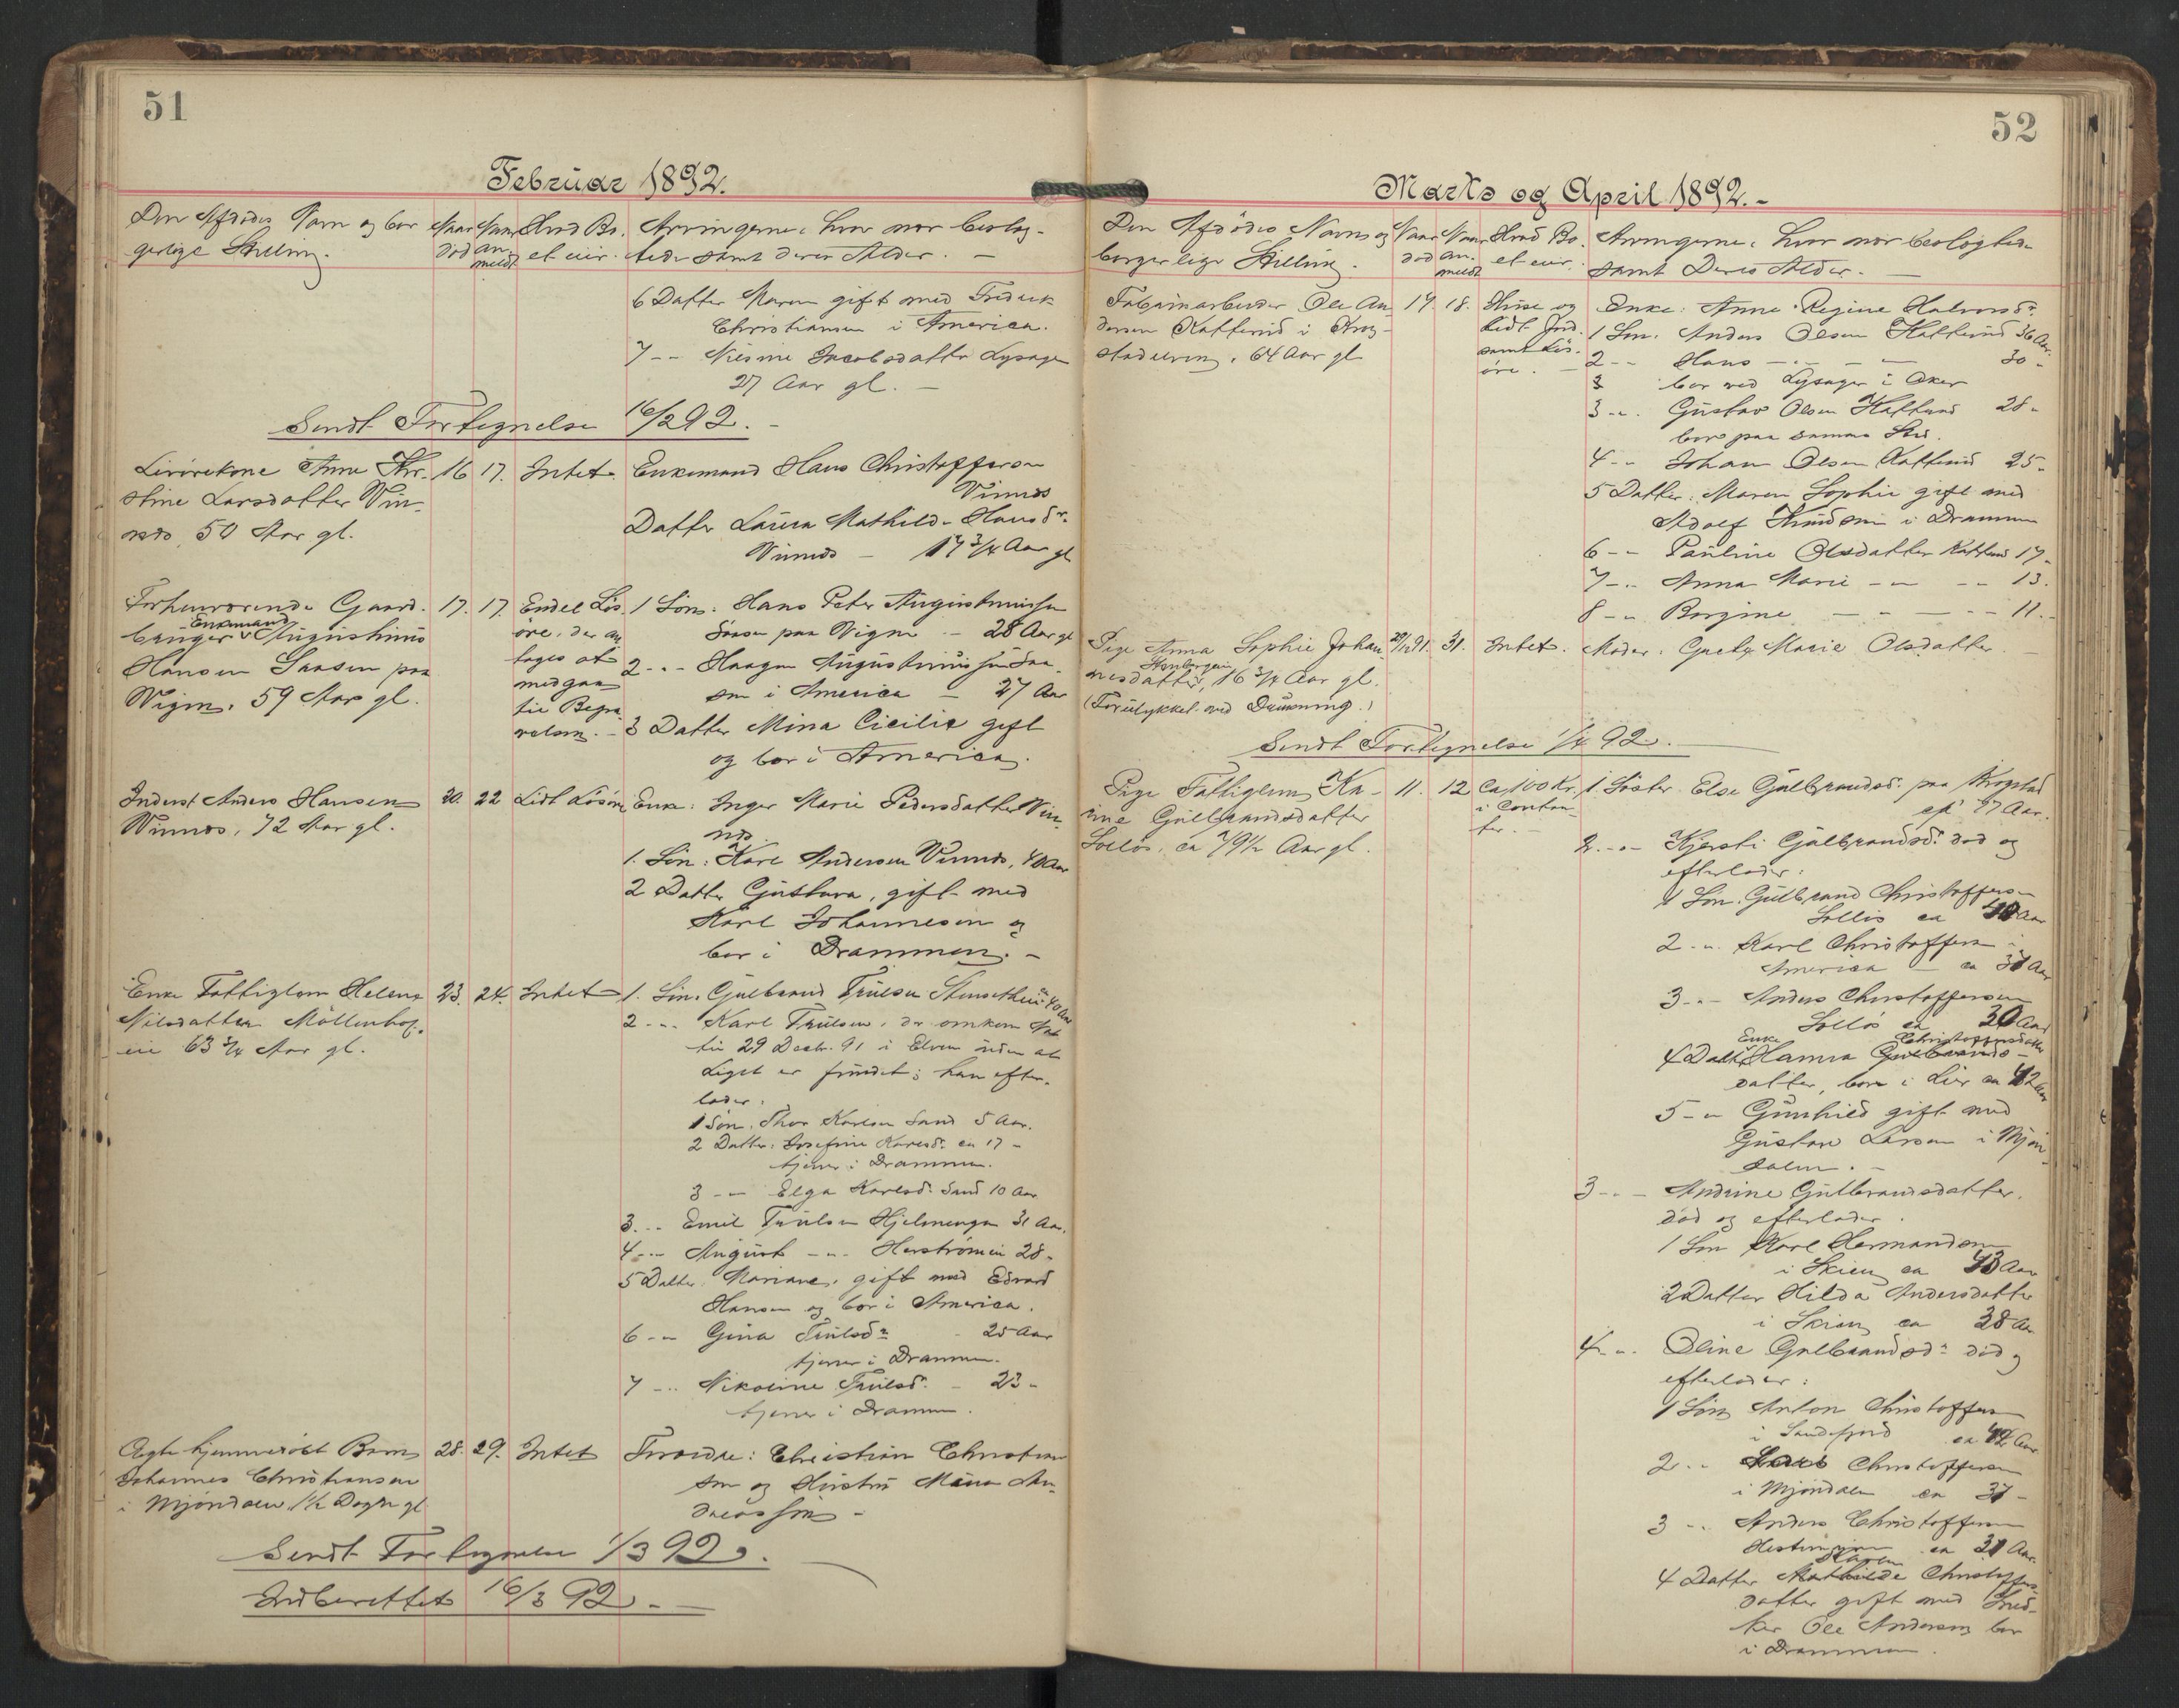 51
Februar 1892.
Den Afdødes Navn og bor
gerlige Stilling.
Naar
død
Naar
an
meldt
Hvad Bo
et eier.
Arvingerne, hvor mor beslag-
teder samt deres Alder. -
6 Datter Maren gift med Fredrik
Christiansen i America.
7 - - Nicsine Jacobsdatter Lysager
27 Aar gl. -
Sendt Fortegnelse 16/2 92. -
Livørekone Anne Kir-
stine Larsdatter Vin-
nes 50 Aar gl.
16
17.
Intet
Enkemand Hans Christoffersen
Vinnes
Datter Laura Mathilde Hansdr.
Vinnes - 17 3/4 Aar gl
Forhenværende Gaard-
Enkemand
bruger Augustinus
Hansen Saasen paa
Vigen. 59 Aar gl.
17.
17.
Endel Løs
øre, der an
tages at
medgaa
til Begra
velsen. -
1 Søn: Hans Peter Augustinussen
Saasen paa Vigen - 28 Aar gl
2 - - Haagen Augustinussen Saa
sen i America - 27 Aar
3 Datter Mina Cicilie gift
og bor i America.
Inderst Anders Hansen
Vinnes, 72 Aar gl.
20.
22
Lidt Løsøre
Enke: Inger Marie Pedersdatter Vin-
nes
1. Søn: Karl Andersen Vinnes, 40 Aar
2 Datter Gustava, gift med
Karl Johannesen og
bor i Drammen. -
Enke Fattiglem Helene
Nilsdatter Møllenhof-
eie 63 3/4 Aar gl.
23.
24.
Intet
1. Søn. Gulbrand Trulsen Stensetheie 40 Aar
2 - - Karl Trulsen, der omkom Nat
til 29 Decbr. 91 i Elven uden at
Liget er fundet; han efter-
lader:
1 Søn. Thor Karlsen Sand 5 Aar.
2 Datter: Josefine Karlsdr. ca 17 -
tjener i Drammen.
3 - - Elga Karlsdr. Sand 10 Aar
3. - - Emil Trulsen Hjelmengen 31 Aar.
4 - - August - - - Herstrømeie 28 -
5 Datter. Mariane, gift med Edvard
Hansen og bor i America.
6 - - Gina Trulsdr. - 25 Aar
tjener i Drammen.
7 - - Nikoline Trulsdr. - 23 -
tjener i Drammen.
Ægte hjemmedøbt Barn
Johannes Christiansen
i Mjøndalen 1 1/2 Døgn gl
28.
29.
Intet
Forældre: Christian Christian
sen og Hustru Maren An-
dreassen -
Sendt Fortegnelse 1/3 92.
Indberettet 16/3 92. -
52
Marts og April 1892. -
Den Afdødes Navn og
borgerlige Stilling.
Naar
død
Naar
an-
meldt
Hvad Bo-
et eier.
Arvingerne, hvor mor beslagtede
samt Deres Alder. -
Fabrikarbeider Ole An
dersen Katterud i Krog-
stadeieren, 64 Aar gl
17.
18.
Huse og
lidt Jord
samt Løs-
øre. -
Enke: Anne Regine Halvorsdr.
1 Søn. Anders Olsen Katterud 36 Aar.
2 - - Hans - - - 30 -
bor ved Lysager i Asker
3 - - Gustav Olsen Katterud 28 -
bor paa samme Sted.
4 - - Johan Olsen Katterud 25 -
5 Datter. Maren Sophie gift med
Adolf Knudsen i Drammen
6 - - Pauline Olsdatter Katterud 17
7 - - Anna Marie - - - 13.
8 - - Borgine - - - 11. -
Pige Anna Sophie Johan
nesdatter, 16 3/4 Aar gl.
(Forulykket ved Drukning.)
29/12 91.
31.
Intet.
Moder: Grethe Marie Olsdatter -
Sendt Fortegnelse 1/4 92. -
Pige Fattiglem Ka-
rine Gulbrandsdatter
Solløs, ca 79 1/2 Aar gl.
11.
12
Ca. 100 Kr.
i Contan-
ter. -
1. Søster. Else Gulbrandsdr. paa Krogstad
2. - - Kjersti Gulbrandsdr. død og
efterlader:
1 Søn. Gulbrand Christoffersen
Solløs ca Aar
2 - - Karl Christoffersen i
America - ca Aar
3 - - Anders Christoffersen
Solløs ca Aar
Enke Christoffersdatter
4 Datter Hanna
datter, bor i Lier ca Aar
5 - - Gunhild gift med
Gustav Larsen i Mjøn-
dalen. -
3 - - Andrine Gulbrandsdatter,
død og efterlader.
1 Søn Karl Hermandsen
i Skien ca Aar
2 Datter Hilda Andersdatter
i Skien ca 38 Aar
4 - - Oline Gulbrandsdr. død og
efterlader:
1 Søn Anton Christoffersen
i Sandefjord ca Aar
2 - - Christoffersen
i Mjøndalen ca -
3 - - Anders Christoffersen
ca Aar.
Karen
4 Datter Mathilde Christoffers-
datter gift med Sned-
ker Ole Andersen bor
i Drammen.